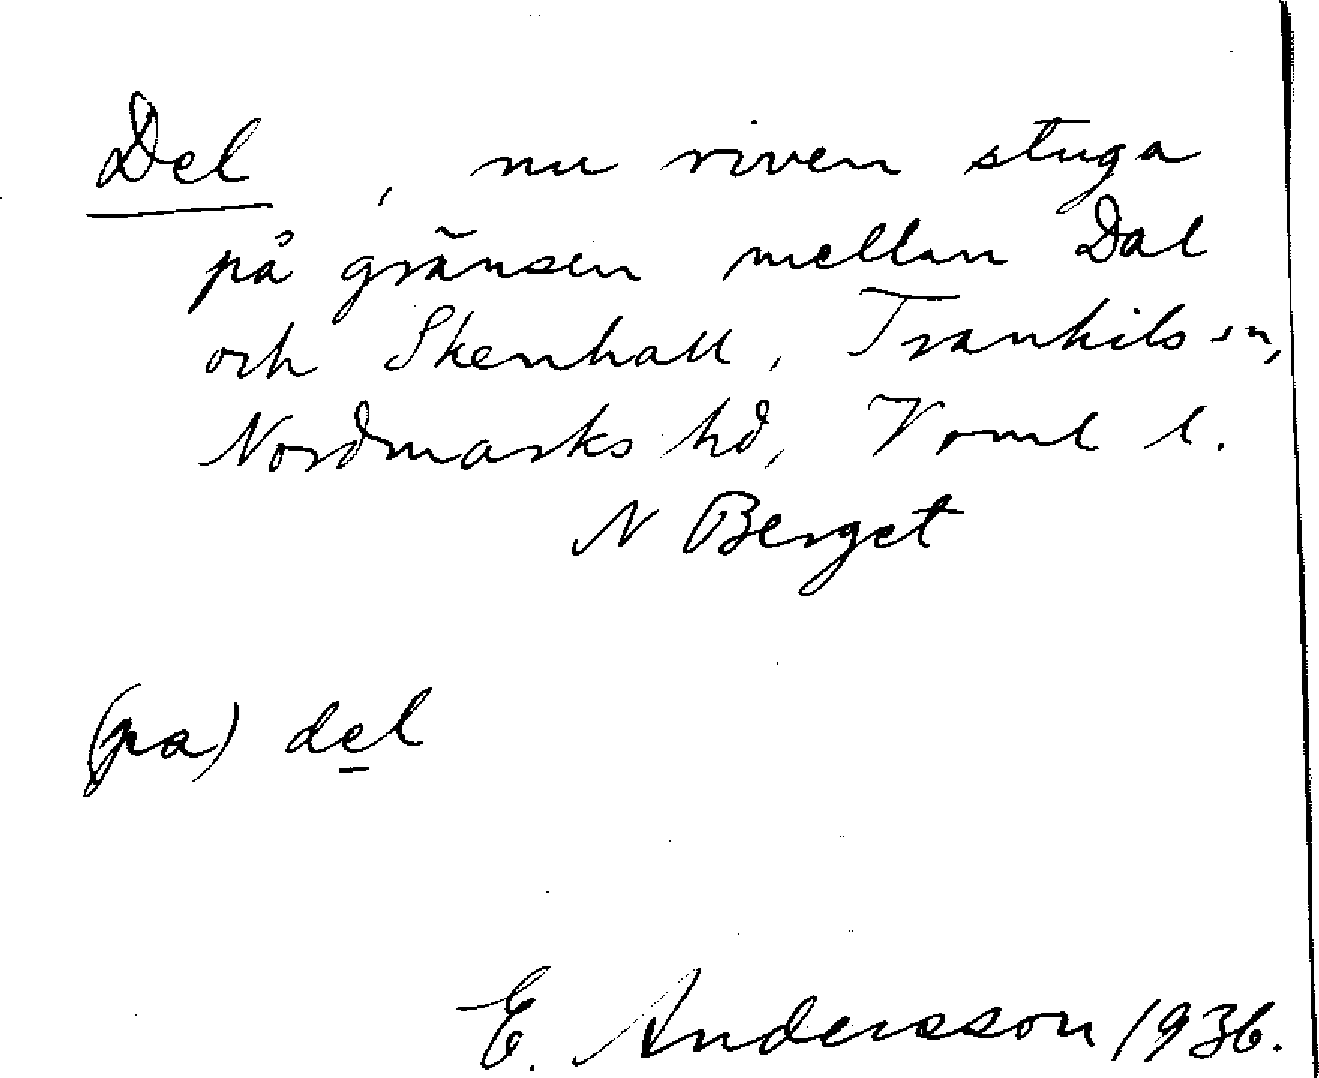 Del, nu riven stuga
på gränsen mellan Dal
och Skenhall, Trankils sn,
Nordmarks hd, Vrml l.
N Berget
(pa) del
E. Andersson 1936.